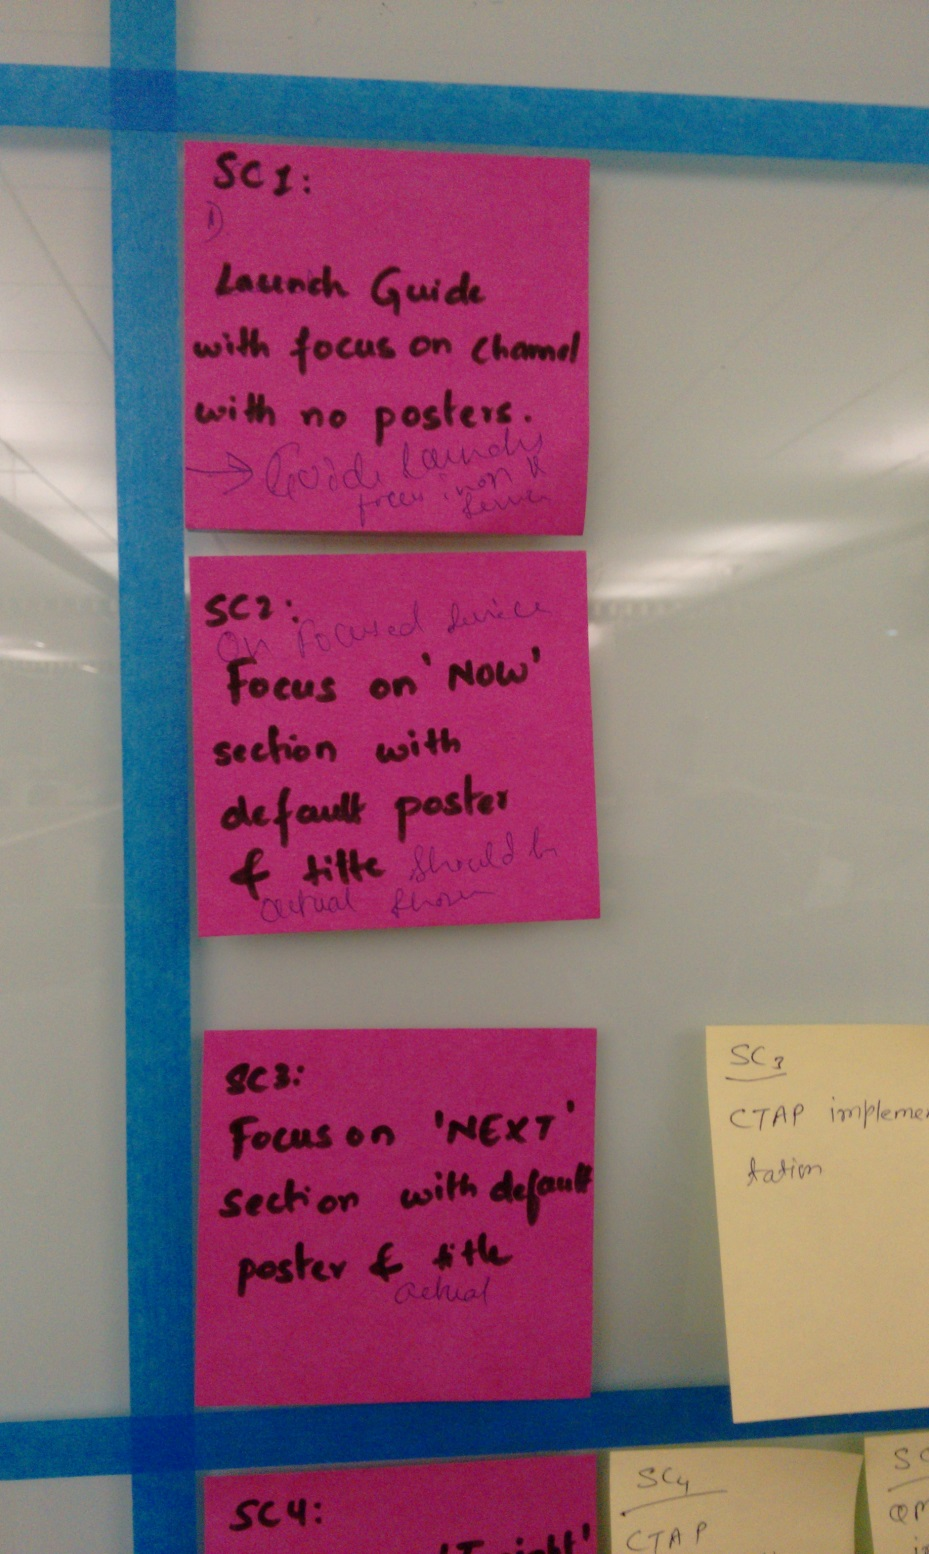 SC1:
1)
Launch Guide
with focus on channel
with no posters.
→ Guide launchs
focus
SC2:
On Focused service
Focus on 'NOW'
section with
default poster
& title should be
actual shown
SC3:
Focus on 'NEXT'
section with default
poster & title
actual
SC3
CTAP implemen
tation
SC4:
'Tonight'
SC4
CTAP
SC